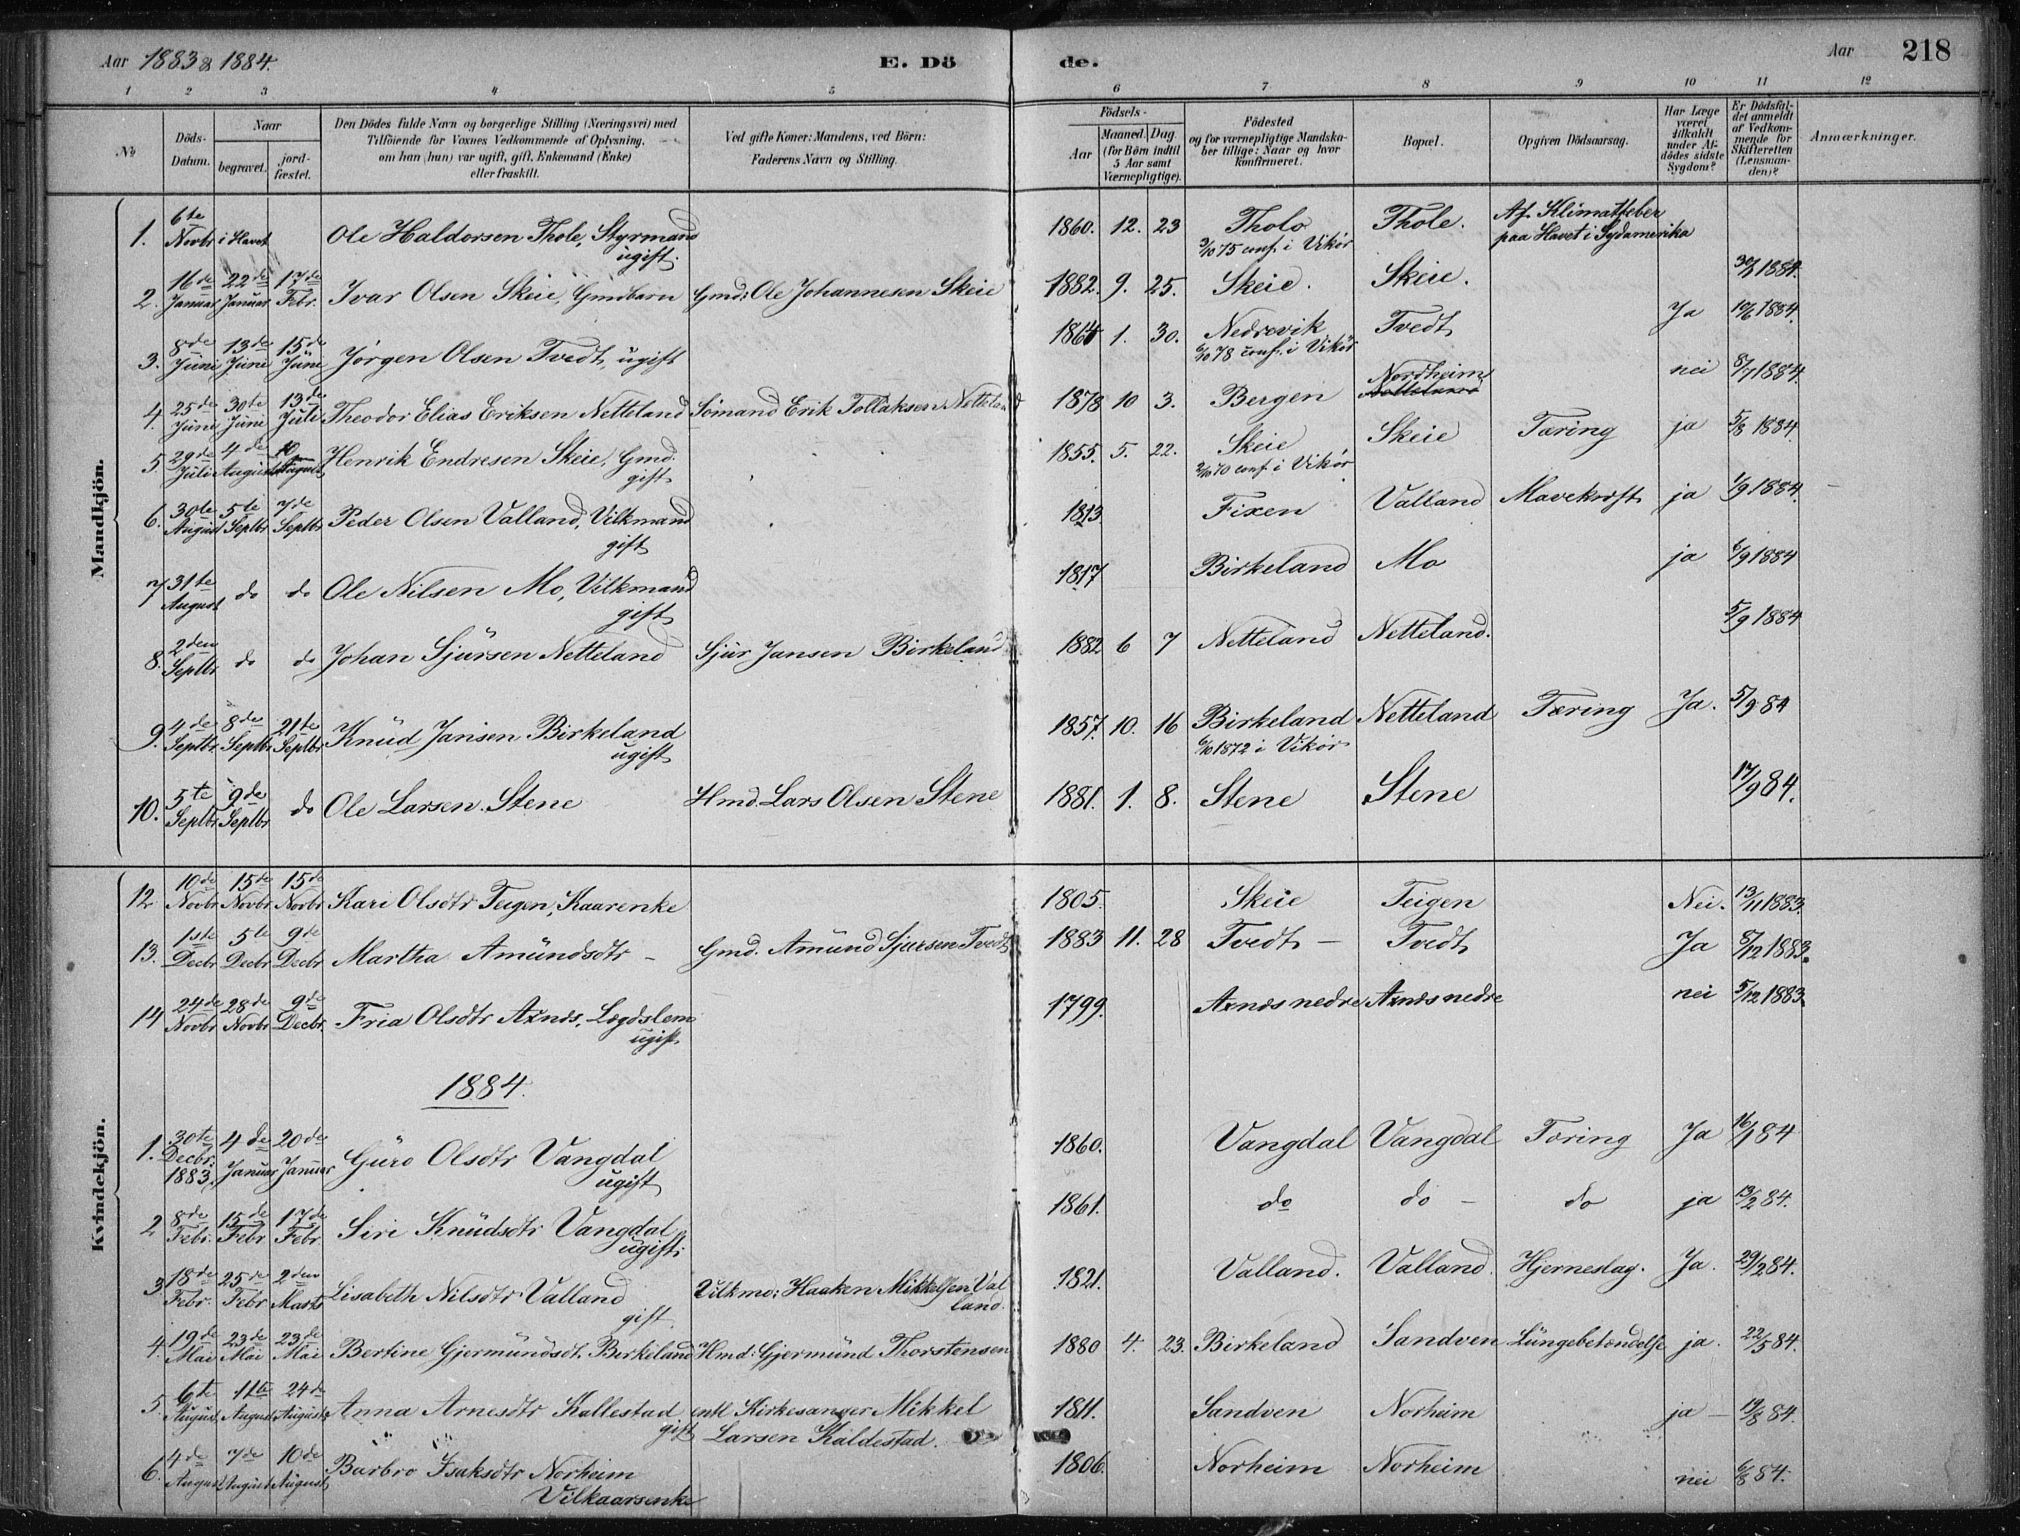 Aar 1883 & 1884. E. Dö de. Aar 218
1 2 3 4 5 6 7 8 9 10 11 12
No Döds-Datum. Naar begravet. jordfæstet. Den Dödes fulde Navn og borgerlige Stilling (Næringsvei) med Tilföiende for Voxnes Vedkommende af Oplysning, om han (hun) var ugift, gift, Enkemand (Enke) eller fraskilt. Ved gifte Koner: Mandens, ved Börn: Faderens Navn og Stilling. Födsels- Aar Maaned. Dag. (for Börn indtil 5 Aar samt Værnepligtige). Födested og for værnepligtige Mandskaber tillige: Naar og hvor konfirmeret. Bopæl. Opgiven Dödsaarsag. Har Læge været tilkaldt under Afdödes sidste Sygdom? Er Dödsfaldet anmeldt af Vedkommende for Skifteretten (Lensmanden)? Anmærkninger.
Mandkjön.
1. 6te Novbr i Havet Ole Haldorsen Thole, Styrmand ugift. 1860. 12. 23 Tholo 3/10 75 conf. i Vikör Thole. Af Klimatfeber paa Havet i Sydamerika
2. 16de Januar 22de Januar 17de Febr. Ivar Olsen Skeie, Gmdbarn Gmd: Ole Johannesen Skeie 1882. 9. 25. Skeie. Skeie. 1884.
3. 8de Juni 13de Juni 15de Juni Jørgen Olsen Tvedt, ugift 1864 1. 30. Nedrevik 6/10 78 conf. i Vikör Tvedt Ja 10/6 1884.
4. 25de Juni 30te Juni 13de Juli Theodor Elias Eriksen Netteland Sømand Erik Tollaksen Netteland 1878 10 3. Bergen Nordheim Netteland nei 8/7 1884.
5. 29de Juli 4de August August Henrik Endresen Skeie, Gmd. gift 1855. 5. 22. Skeie 2/10 70 conf. i Vikör Skeie Tæring ja 5/8 1884.
6. 30te August 5te Septbr 7de Septbr Peder Olsen Valland, Vilkmand gift 1813 Fixen Valland Mavekræft ja 1/9 1884.
7 31te August do do Ole Nilsen Mo, Vilkmand gift 1817 Birkeland Mo ja 6/9 1884
8. 2den Septbr do do Johan Sjürsen Netteland Sjur Jansen Birkeland 1882 6 7 Netteland Netteland. 5/9 1884
9. 4de Septbr 8de Septbr 21te Septbr Knüd Jansen Birkeland ugift 1857. 10. 16 Birkeland 6/10 1872 i Vikör Netteland Tæring Ja. 5/9 84
10. 5te Septbr 9de Septbr do Ole Larsen Stene Hmd. Lars Olsen Stene 1881. 1. 8. Stene Stene 17/9 84.
Kvindekjön.
12 10de Novbr 15de Novbr 15de Novbr Kari Olsdtr Teigen, Kaarenke 1805. Skeie Teigen Nei. 13/11 1883.
13. 1ste Decbr 5te Decbr 9de Decbr Martha Amündsdtr – Gmd. Amünd Sjursen Tvedt 1883 11. 28 Tvedt – Tvedt Ja 8/12 1883.
14 24de Novbr 28de Novbr 9de Decbr. Fria Olsdtr Axnes, Lægdslem ugift 1799. Axnes nedre Axnes nedre nei 5/12 1883.
1884.
1. 30te Decbr. 1883. 4de Januar 20de Januar Güro Olsdtr Vangdal ugift 1860. Vangdal Vangdal Tæring Ja 16/1 84
2 8de Febr. 15de Febr 17de Febr. Siri Knüdsdtr Vangdal ugift. 1861. do do – do ja 13/2 84.
3. 18de Febr. 25de Febr 2den Marts Lisabeth Nilsdtr Valland gift. Vilkmd: Haaken Mikkelsen Valland. 1821. Valland. Valland. Hjerneslag. Ja. 29/2 84.
4. 19de Mai 23de Mai 23de Mai Bertine Gjermündsdt. Birkeland Hmd: Gjermünd Thorstensen 1880 4. 23. Birkeland Sandven Lüngebetændelse ja. 22/5 84.
5. 6te August 11te August 24de August Anna Arnesdtr Kallestad gift entl Kirkesanger Mikkel Larsen Kaldestad. 1811. Sandven Norheim ja – 19/8 84.
6. 4de August 7de August 10de August Barbro Isaksdtr Norheim Vilkaarsenke 1806. Norheim Norheim nei 6/8 84.